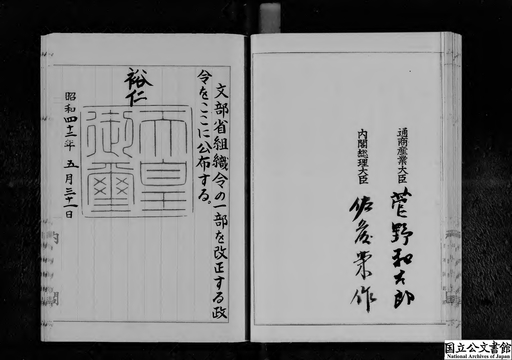 通商産業大臣 菅野和太郎
内閣総理大臣 佐藤栄作
文部省組織令の一部を改正する政
令をここに公布する。
裕仁
天皇
御璽
昭和四十三年五月三十一日
国立公文書館
National Archives of Japan